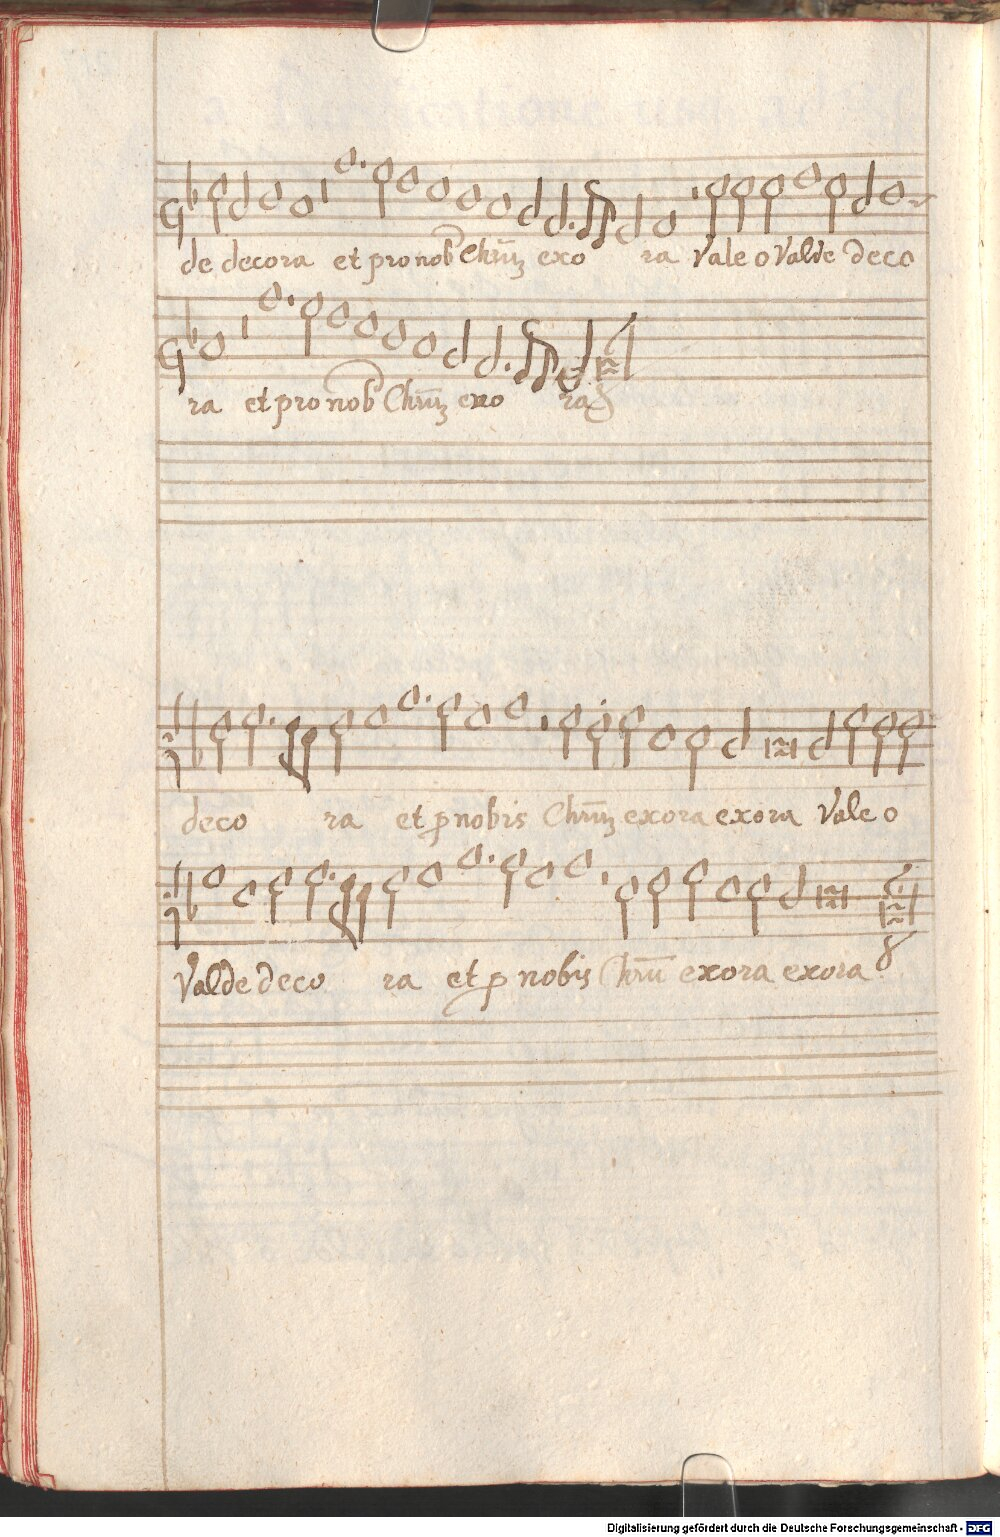 de decora et pro nob Chrm exo ra Vale o Valde deco
ra et pro nob Chrm exo ra
deco ra et p nobis Chrm exora exora Vale o
Valde deco ra et p nobis Chrm exora exora
Digitalisierung gefördert durch die Deutsche Forschungsgemeinschaft - DFG